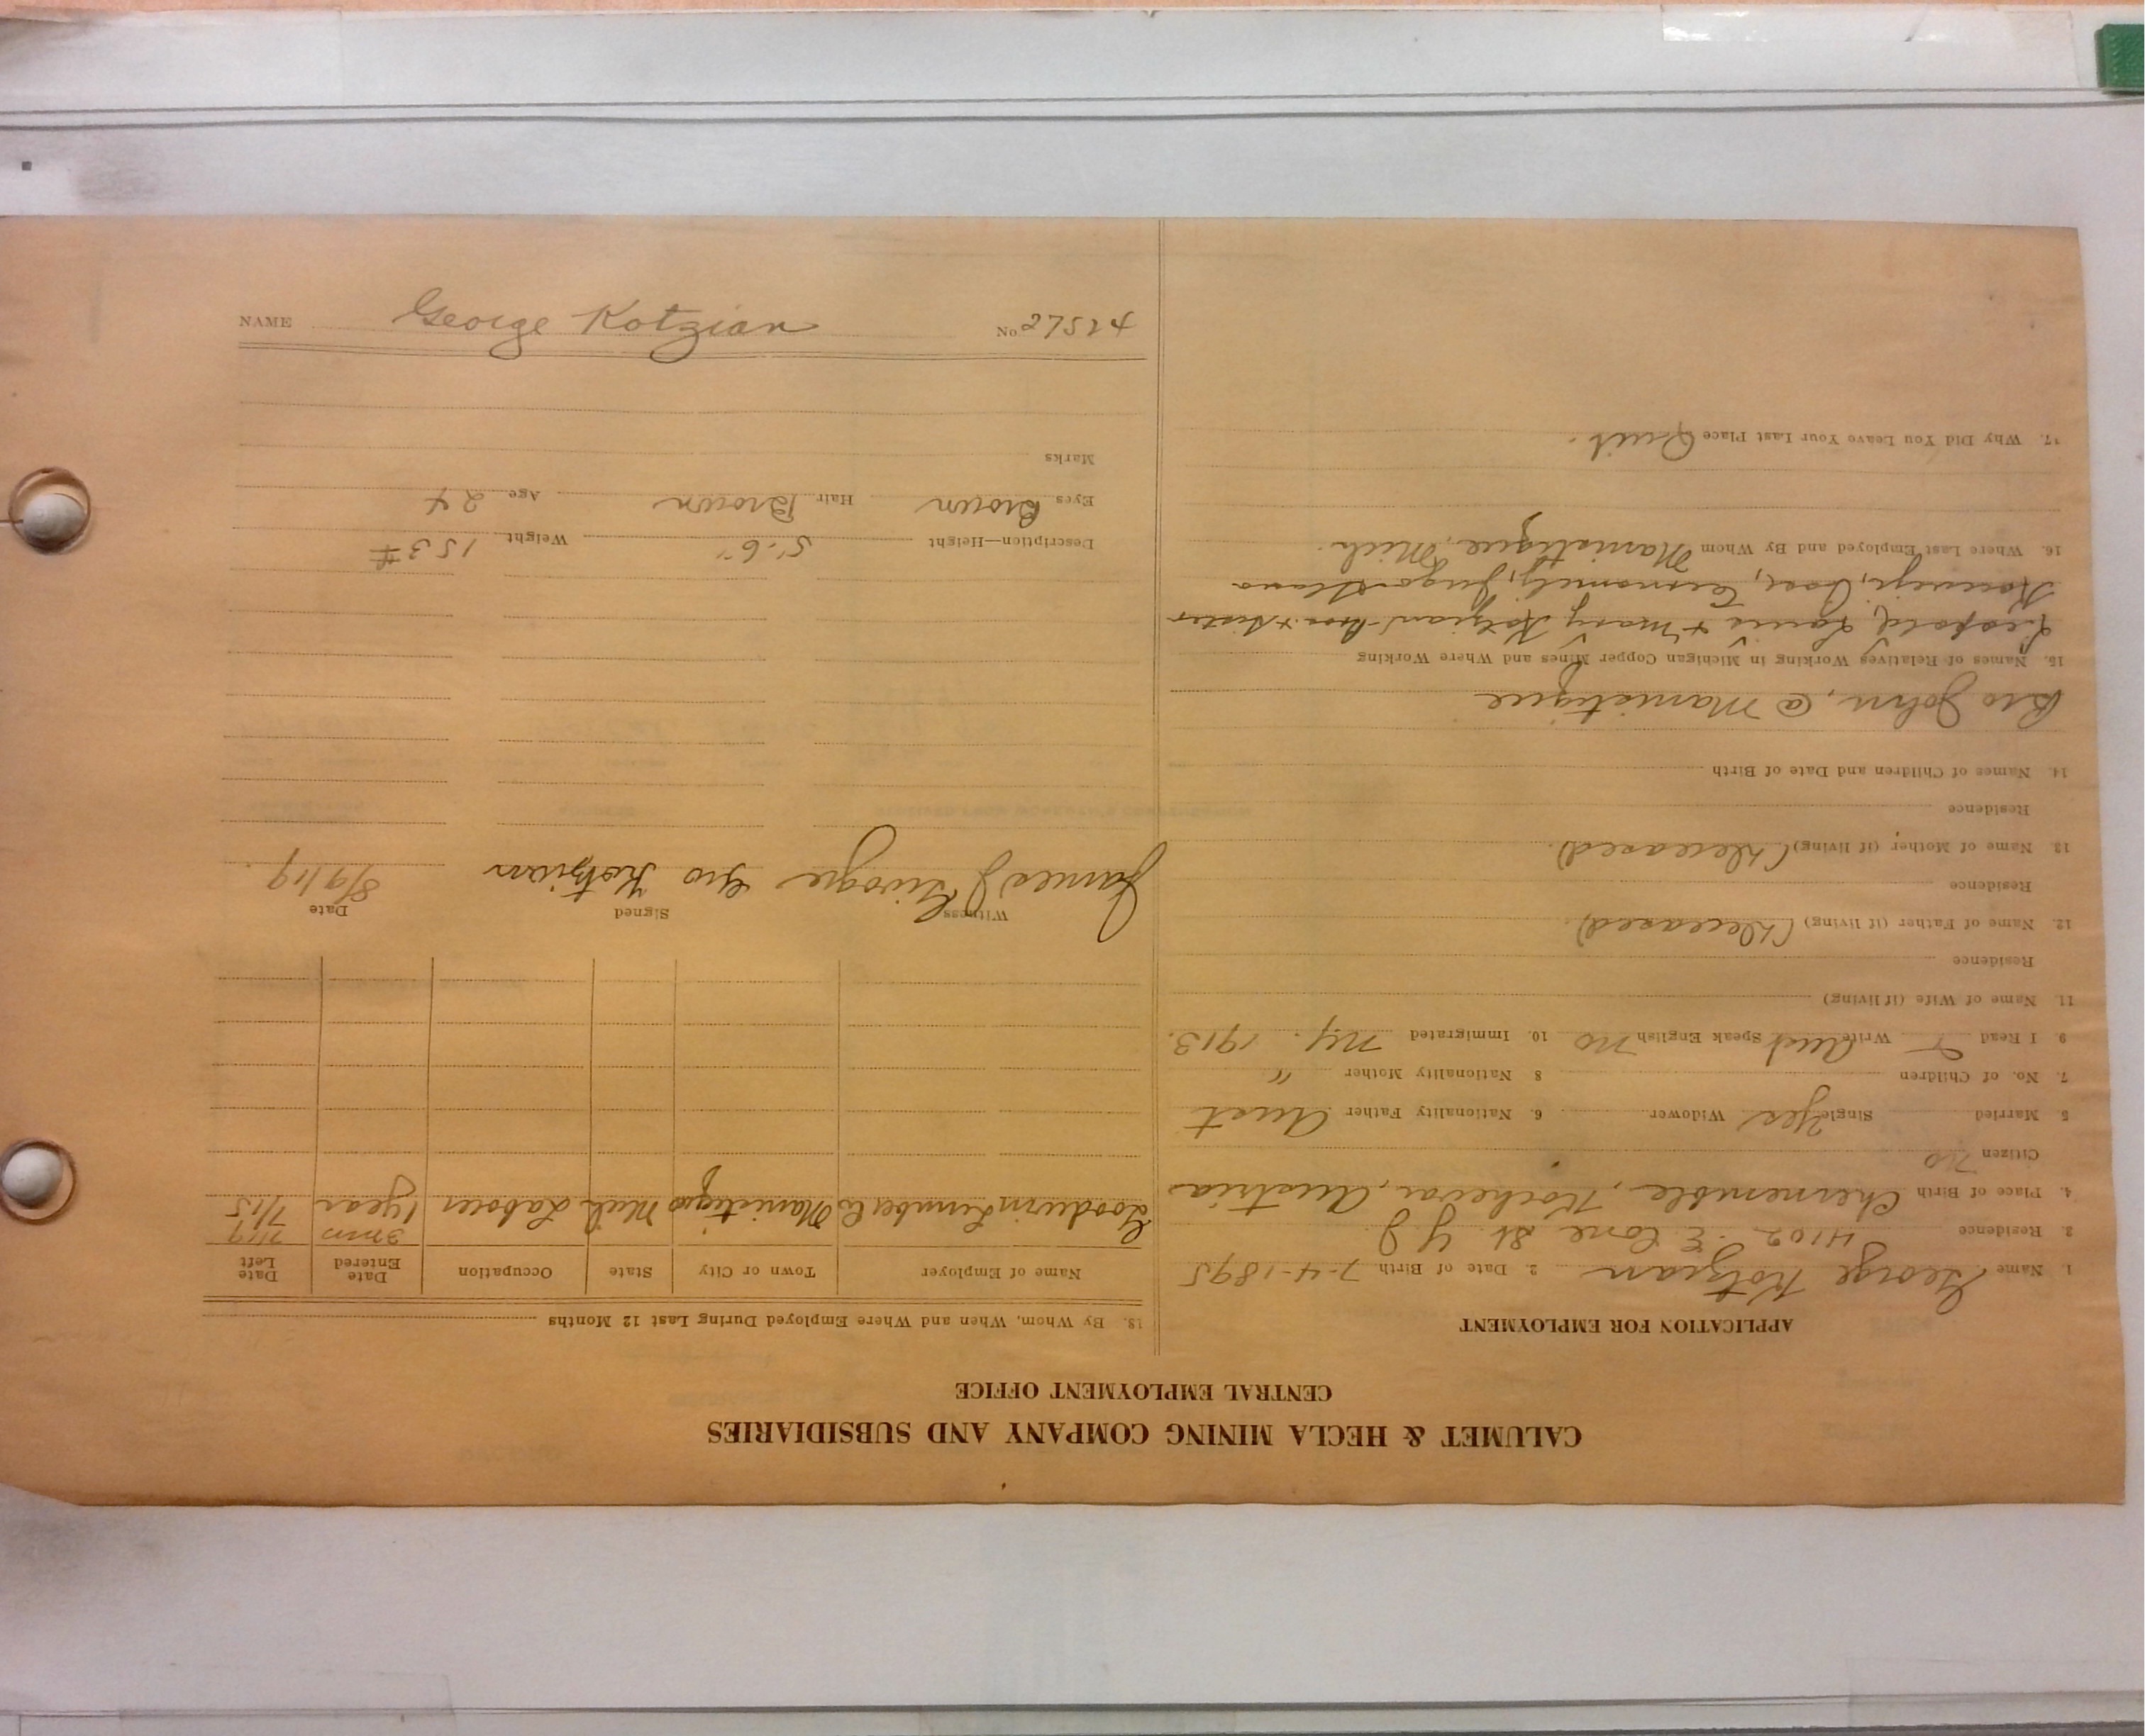 CALUMET & HECLA MINING COMPANY AND SUBSIDIARIES
CENTRAL EMPLOYMENT OFFICE
APPLICATION FOR EMPLOYMENT
1. Name George Kotzian 2. Date of Birth 7-4-1895
3. Residence 4102 E Cone St. Y J.
4. Place of Birth Chermemble, Kochevar, Austria
Citizen no
5 Married Single Yes Widower 6. Nationality Father Aust
7. No. of Children 8 Nationality Mother "
9 I Read Write Aust Speak English no 10. Immigrated N.Y. 1913.
11. Name of Wife (if living)
Residence
12. Name of Father (if living) (Deceased).
Residence
13. Name of Mother (if living) (Deceased).
Residence
14. Names of Children and Date of Birth
Bro John, @ Manistique
15. Names of Relatives Working in Michigan Copper Mines and Where Working
Leopold, Louis + Mary Kotzian - Bros + Sister
16. Where Last Employed and By Whom Manistique, Mich.
17. Why Did You Leave Your Last Place Quit.
18. By Whom, When and Where Employed During Last 12 Months
Name of Employer Town or City State Occupation Date Entered Date Left
3 mo 7/19
Goodwin Lumber Co Manistique Mich Laborer 1 year 7/15
Witness Signed Date
James J Geo Kotzian 8/9/19.
Description—Height 5'-6" Weight 153 #
Eyes Brown Hair Brown Age 24
Marks
NAME George Kotzian No 27524